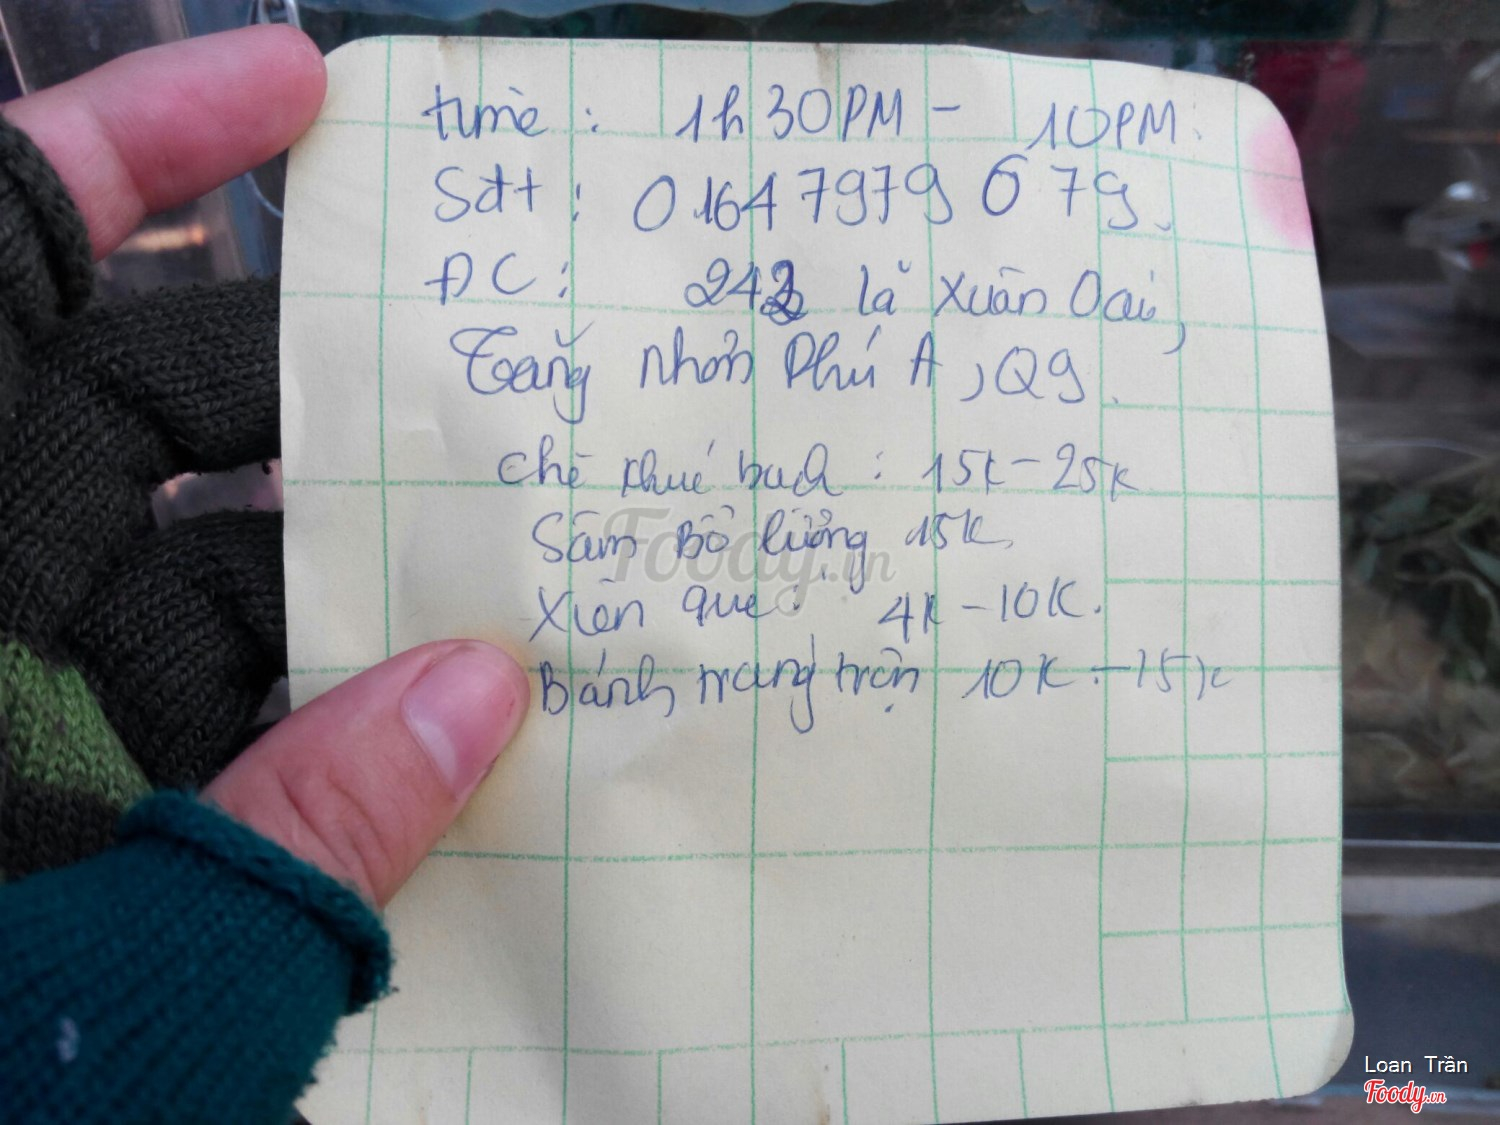 time : 1h30PM - 10PM.
Sđt : 01647979679.
ĐC : 242 lã Xuân Oai,
Tăng nhơn Phú A, Q9.
Chè khúc bạch : 15k - 25k
Sâm Bổ lượng 15k.
Foody.vn
Xiên que : 4k - 10k.
Bánh tráng trộn 10k - 15k
Loan Trần
Foody.vn